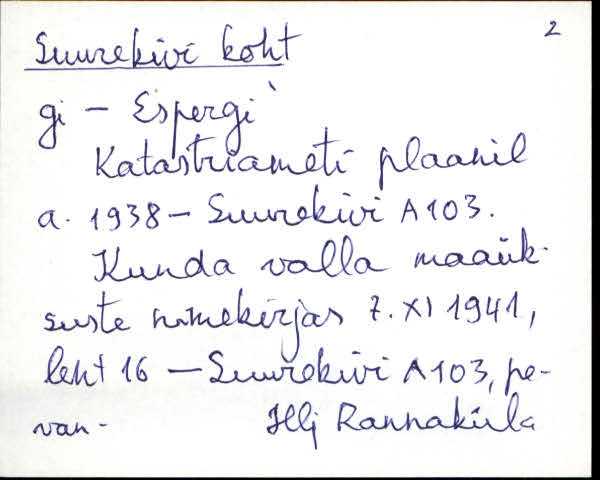 2
Suurekivi koht
gi - Espergi
Katastriameti plaanil
a. 1938 - Suurekivi A103.
Kunda valla maaük-
suste nimekirjas 7. XI 1941,
leht 16 - Suurekivi A103, pe-
van- Hlj Rannaküla